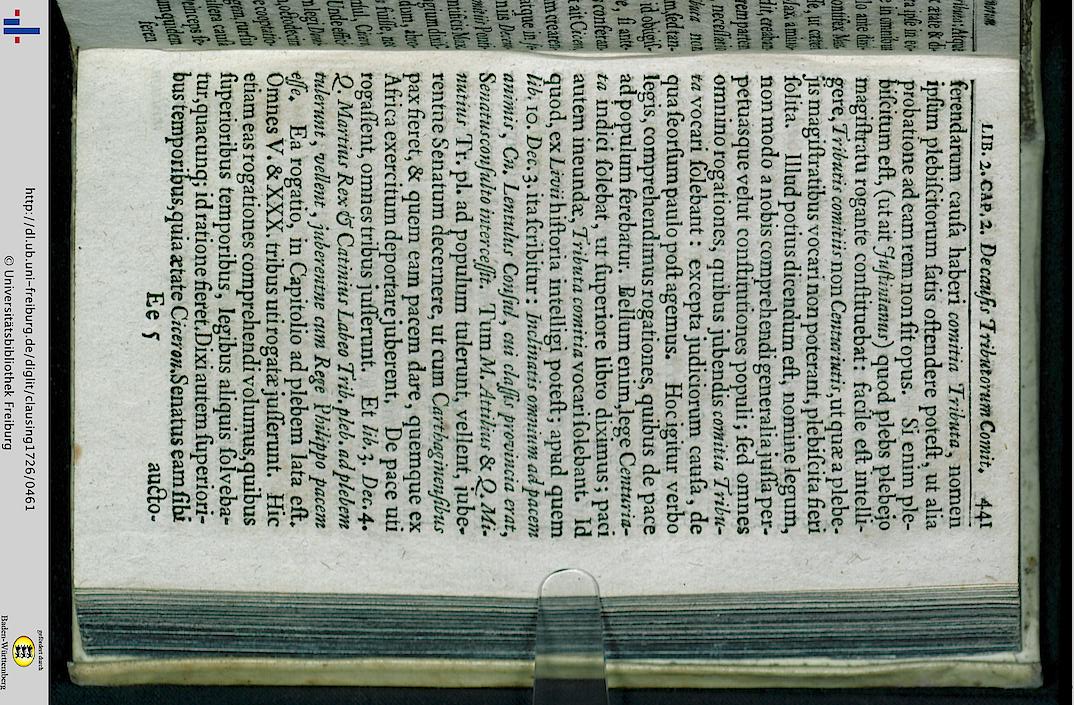 LIB. 2. CAP. 2. De causis Tributorum Comit. 441
ferendarum causſa haberi comitia Tributa, nomen
ipſum plebiſcitorum ſatis oſtendere poteſt, ut alia
probatione ad eam rem non ſit opus. Si enim ple-
biſcitum eſt, (ut ait Juſtinianus) quod plebs plebejo
magiſtratu rogante conſtituebat: facile eſt intelli-
gere, Tributis comitiis non Centuriatis, ut quæ a plebe-
jis magiſtratibus vocari non poterant, plebiſcita fieri
ſolita. Illud potius dicendum eſt, nomine legum,
non modo a nobis comprehendi generalia juſſa per-
petuasque velut conſtitutiones populi; ſed omnes
omnino rogationes, quibus jubendis comitia Tribu-
ta vocari ſolebant: excepta judiciorum cauſa, de
qua ſeorſim paulo poſt agemus. Hoc igitur verbo
legis, comprehendimus rogationes, quibus de pace
ad populum ferebatur. Bellum enim, lege Centuria-
ta indici ſolebat, ut ſuperiore libro diximus; paci
autem ineundæ, Tributa comitia vocari ſolebant. Id
quod, ex Livii hiſtoria intelligi poteſt; apud quem
lib. 10. Dec. 3. ita ſcribitur: Inclinatis omnium ad pacem
animis, Cn. Lentulus Conſul, cui claſſis provincia erat,
Senatusconſulto interceſſit. Tum M. Attilius & Q. Mi-
nutius Tr. pl. ad populum tulerunt, vellent, jube-
rentne Senatum decernere, ut cum Carthaginenſibus
pax fieret, & quem eam pacem dare, quemque ex
Africa exercitum deportare juberent. De pace uti
rogaſſent, omnes tribus juſſerunt. Et lib. 3. Dec. 4.
Q. Martius Rex & Catinius Labeo Trib. pleb. ad plebem
tulerunt, vellent, juberentne cum Rege Philippo pacem
eſſe. Ea rogatio, in Capitolio ad plebem lata eſt.
Omnes V. & XXX. tribus uti rogatæ juſſerunt. Hic
etiam eas rogationes comprehendi volumus, quibus
ſuperioribus temporibus, legibus aliquis ſolveba-
tur, quacunq; id ratione fieret. Dixi autem ſuperiori-
bus temporibus, quia ætate Ciceron. Senatus eam ſibi
Ee 5 aucto-
http://dl.ub.uni-freiburg.de/diglit/clausing1726/0461
© Universitätsbibliothek Freiburg
gefördert durch
Baden-Württemberg